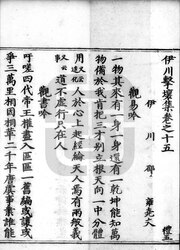 伊川擊壤集卷之十五
伊川 邵 雍 堯夫
觀易吟
一物其來有一身一身還有一乾坤能知萬
物備於我肯把三才別立根天向一中分體
用人於心上起經綸天人焉有兩般義
道不虛行只在人
觀書吟
吁嗟四代帝王權盡入區區一舊編或讓或
爭三萬里相因相革二千年唐虞事業誰能